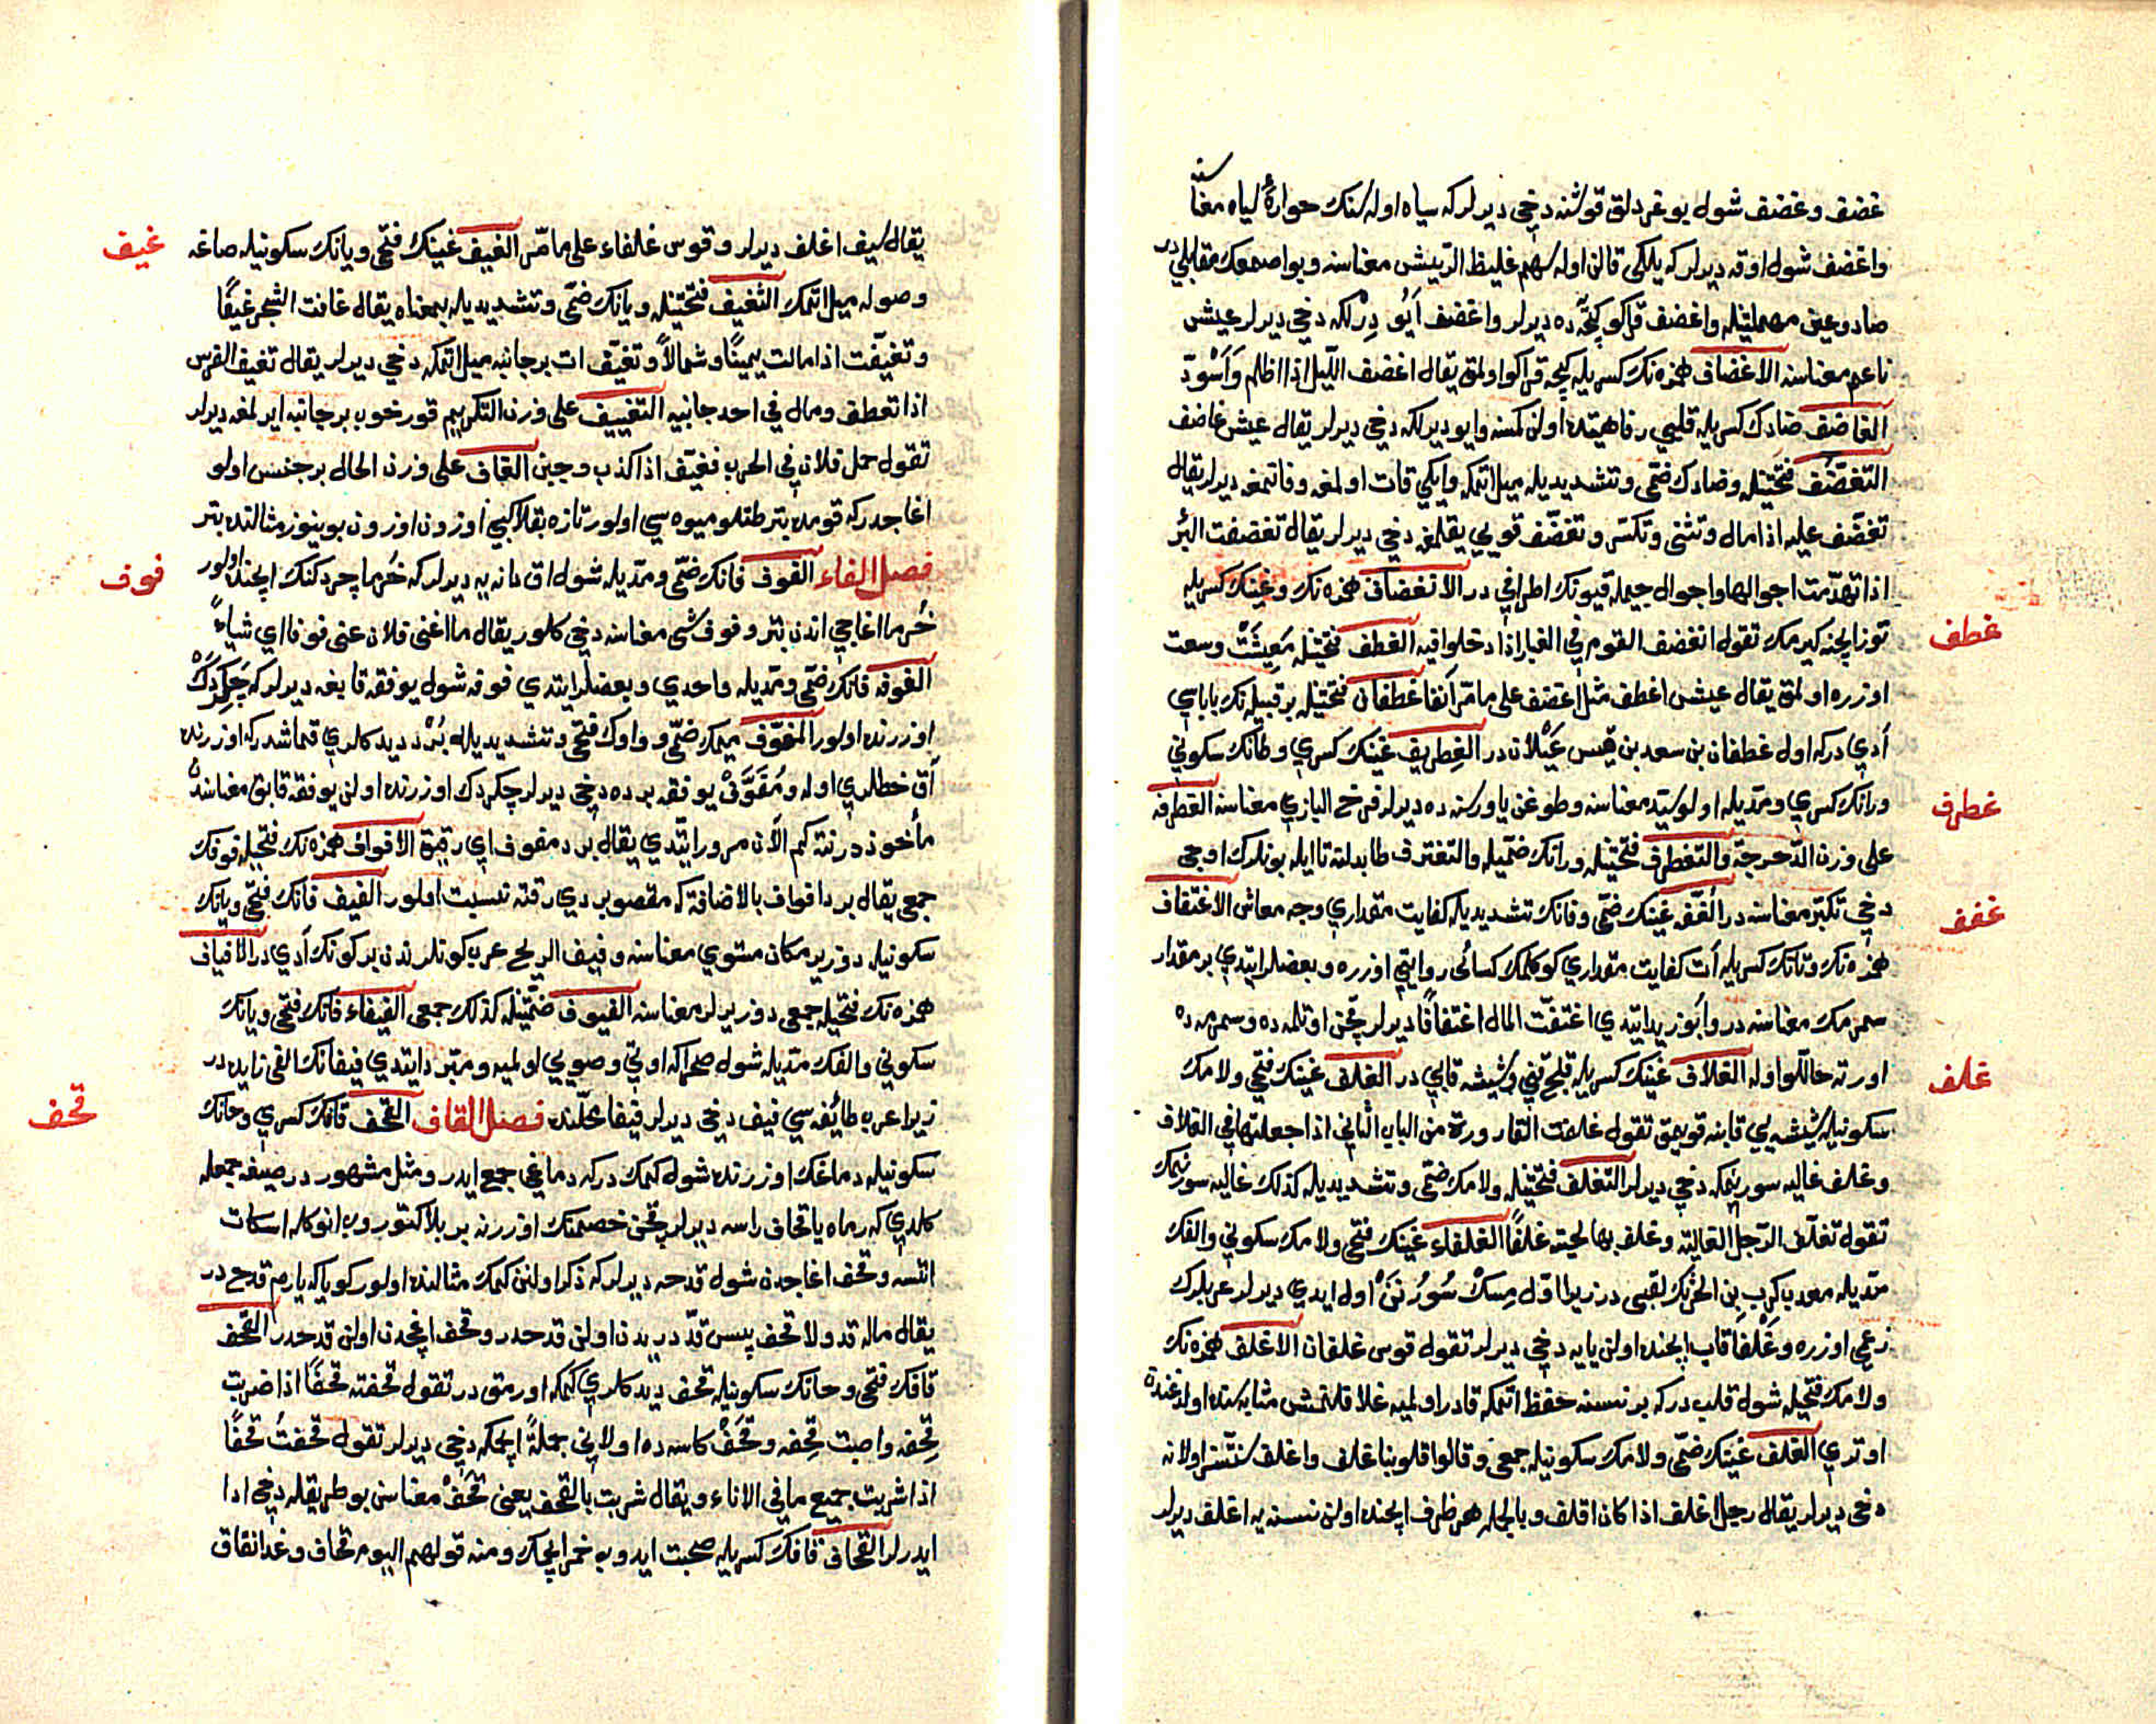 غضف وغضف شول يوغردلق قوشنه دخي ديرلر كه سياه اوله سنك حوارة سياه معناسنه
واغضف شول اوقه ديرلر كه يلكي قالن اوله سهم غليظ الريش معناسنه وبو اصمعك مقابليدر
صاد وعين مهملتيله واغضف قراكو كيجه ده ديرلر واغضف ايو ديرلكه دخي ديرلر عيش
ناعم معناسنه الاغضاف همزه نك كسريله كيجه قراكو اولمق يقال اغضف الليل اذا اظلم واسود
الغاضف ضادك كسريله قليبي رفاهيتده اولن كمسنه وايو ديرلكه دخي ديرلر يقال عيش غاضف
التغضف فتحتيله وضادك ضمي وتشديديله ميل اتمكه وايكي قات اولمغه وقاتمغه ديرلر يقال
تغضف عليه اذا مال وتثنى وتكسر وتغضف قويي يقلمغه دخي ديرلر يقال تغضفت البئر
اذا تهدمت اجوالها واجوال جيمله قيونك اطرافي در الانغضاف همزه نك وغينك كسريله
توز ايچنه كيرمك تقول انغضف القوم في الغبار اذا دخلوا فيه الغطف فتحتيله معيشت وسعت
غطف
اوزره اولمق يقال عيش اغطف مثل اغضف على ما مر آنفا غطفان فتحتيله بر قبيله نك باباسي
آدي در كه اول غطفان بن سعد بن قيس عيلان در الغطريف غينك كسري وطانك سكوني
ورانك كسري ومديله اولو سيد معناسنه وطوغن ياوريسنه ده ديرلر فرخ البازي معناسنه الغطرفة
غطرف
على وزن الدحرجة والتغطرف فتحتيله ورانك ضميله والتغترف طا بدلنه تا ايله بونلرك اوجي
دخي تكبر معناسنه در الغفف غينك ضمي وفانك تشديديله كفايت مقداري وجه معاش الاغتفاف
غفف
همزه نك وتانك كسريله آت كفايت مقداري كوكلمك كسائي روايتي اوزره وبعضلر ايتدي بر مقدار
سمرمك معناسنه در وابو زيد ايتدي اغتفت المال اغتفافا ديرلر قچن اوتلمه ده وسمرمه ده
اورته حاللو اوله الغلاف غينك كسريله قلج قيني وشيشه قابي در الغلف غينك فتحي ولامك
غلف
سكونيله شيشه يي قابنه قويمق تقول غلفت القارورة من الباب الثاني اذا جعلتها في الغلاف
وغلف غاليه سورنمكه دخي ديرلر التغلف فتحتيله ولامك ضمي وتشديديله كذلك غاليه سورنمك
تقول تغلف الرجل الغالية وغلف بها لحيته غلفا الغلفاء غينك فتحي ولامك سكوني والفك
مديله معديكرب بن الحرثك لقبي در زيرا اول مسك سورنن اول ايدي ديرلر عربلرك
زعمي اوزره وغلفا قاب ايچنده اولن يايه دخي ديرلر تقول قوس غلفان الاغلف همزه نك
ولامك فتحيله شول قلب در كه بر نسنه حفظ اتمكه قادر اولميه غلافلنمش مثابه سنده اولدغندن
اوتري الغلف غينك ضمي ولامك سكونيله جمعي وقالوا قلوبنا غلف واغلف سنتسز اولانه
دخي ديرلر يقال رجل اغلف اذا كان اقلف وبالجمله هر ظرف ايچنده اولن نسنه يه اغلف ديرلر
يقال سيف اغلف ديرلر وقوس غلفاء على ما مر الغيف غينك فتحي ويانك سكونيله صاغه
غيف
وصوله ميل اتمك التغيف فتحتيله ويانك ضمي وتشديديله بمعناه يقال غافت الشجر غيفا
وتغيفت اذا مالت يمينا وشمالا وتغيف ات بر جانبه ميل اتمكه دخي ديرلر يقال تغيف الفرس
اذا تعطف ومال في احد جانبيه التغييف على وزن التكريم قورخوب بر جانبه ايرلمغه ديرلر
تقول حمل فلان في الحرب فغيف اذا كذب وجبن الغاف على وزن الحال بر جنس اولو
اغاجدر كه قومده بتر طتلو ميوه سي اولور تازه بقلا كبي اوزون اوزون بوينوز مثالنده بتر
فصل الفاء الفوف فانك ضمي ومديله شول اق دانه يه ديرلر كه خرما چردكنك ايچنده اولور
فوف
خرما اغاجي اندن بتر وفوف شى معناسنه دخي كلور يقال ما اغنى فلان عني فوفا اي شياء
الفوفه فانك ضمي ومديله واحدي وبعضلر ايتدي فوفه شول يوفقه قابغه ديرلر كه چكردك
اوزرنده اولور المفوف ميمك ضمي وواوك فتحي وتشديديله برد ديد كلري قماشدر كه اوزرنده
آق خطلري اوله ومفوف يوفقه برده دخي ديرلر چكردك اوزرنده اولن يوفقه قابق معناسندن
مأخوذ در نته كم الآن مرور ايتدي يقال برد مفوف اي رقيق الافواف همزه نك فتحيله فوفك
جمعي يقال برد افواف بالاضافة كه مقصور بردي رقته نسبت اولور الفيف فانك فتحي ويانك
سكونيله دوز ير مكان مستوي معناسنه وفيف الريح عرب كونلرندن بر كونك آدي در الافياف
همزه نك فتحيله جمعي دوز يرلر معناسنه الفيوف ضمتيله كذلك جمعي الفيفاء فانك فتحي ويانك
سكوني والفك مديله شول صحرا كه اوتي وصويي اولميه ومبرد ايتدي فيفانك الفي زايده در
زيرا عرب طائفه سي فيف دخي ديرلر فيفا محلنده فصل القاف القحف قافك كسري وحانك
قحف
سكونيله دماغك اوزرنده شول كمك در كه دماغي جمع ايدر ومثل مشهور در صيغه جمعله
كلدي كه رماه باقحاف راسه ديرلر قچن خصمنك اوزرنه بر بلا كتوروب انوكله اسكات
اتسه وقحف اغاجدن شول قدحه ديرلر كه ذكر اولنن كمك مثالنده اولور كويا كه يارم قدح در
يقال ماله قد ولا قحف پيس قد دريدن اولن قدحدر وقحف اغجدن اولن قدحدر القحف
قافك فتحي وحانك سكونيله قحف ديد كلري كمكه اورمق در تقول قحفته قحفا اذا ضربت
قحفه واصبت قحفه وقحف كاسه ده اولاني جملة ايچمكه دخي ديرلر تقول قحفت قحفا
اذا شربت جميع ما في الاناء ويقال شربت بالقحف يعني قحف معناسن بو طريقله دخي ادا
ايدرلر القحاف قافك كسريله صحبت ايدوب خمر ايچمك ومنه قولهم اليوم قحاف وغدا نقاف